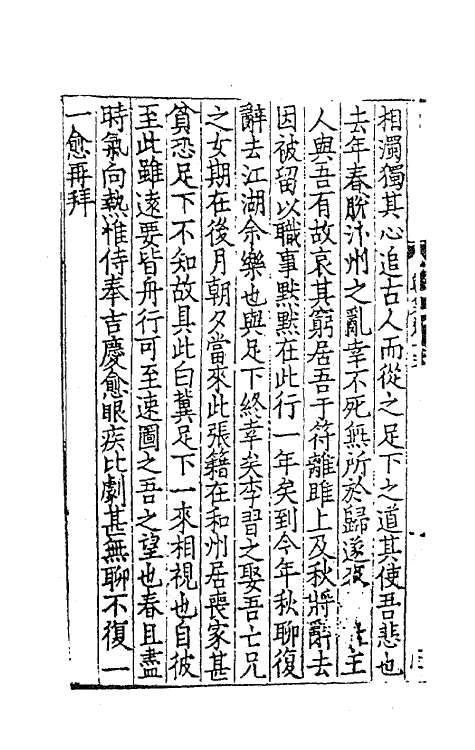 相濁獨其心追古人而從之足下之道其使吾悲也
去年春脫汴州之亂幸不死無所於歸遂來 主
人與吾有故哀其窮居吾于符離睢上及秋將辭去
因被留以職事默默在此行一年矣到今年秋聊復
辭去江湖余樂也與足下終幸矣李習之娶吾亡兄
之女期在後月朝夕當來此張籍在和州居喪家甚
貧恐足下不知故具此白冀足下一來相視也自彼
至此雖遠要皆舟行可至速圖之吾之望也春且盡
時氣向熱惟侍奉吉慶愈眼疾比劇甚無聊不復一
一愈再拜